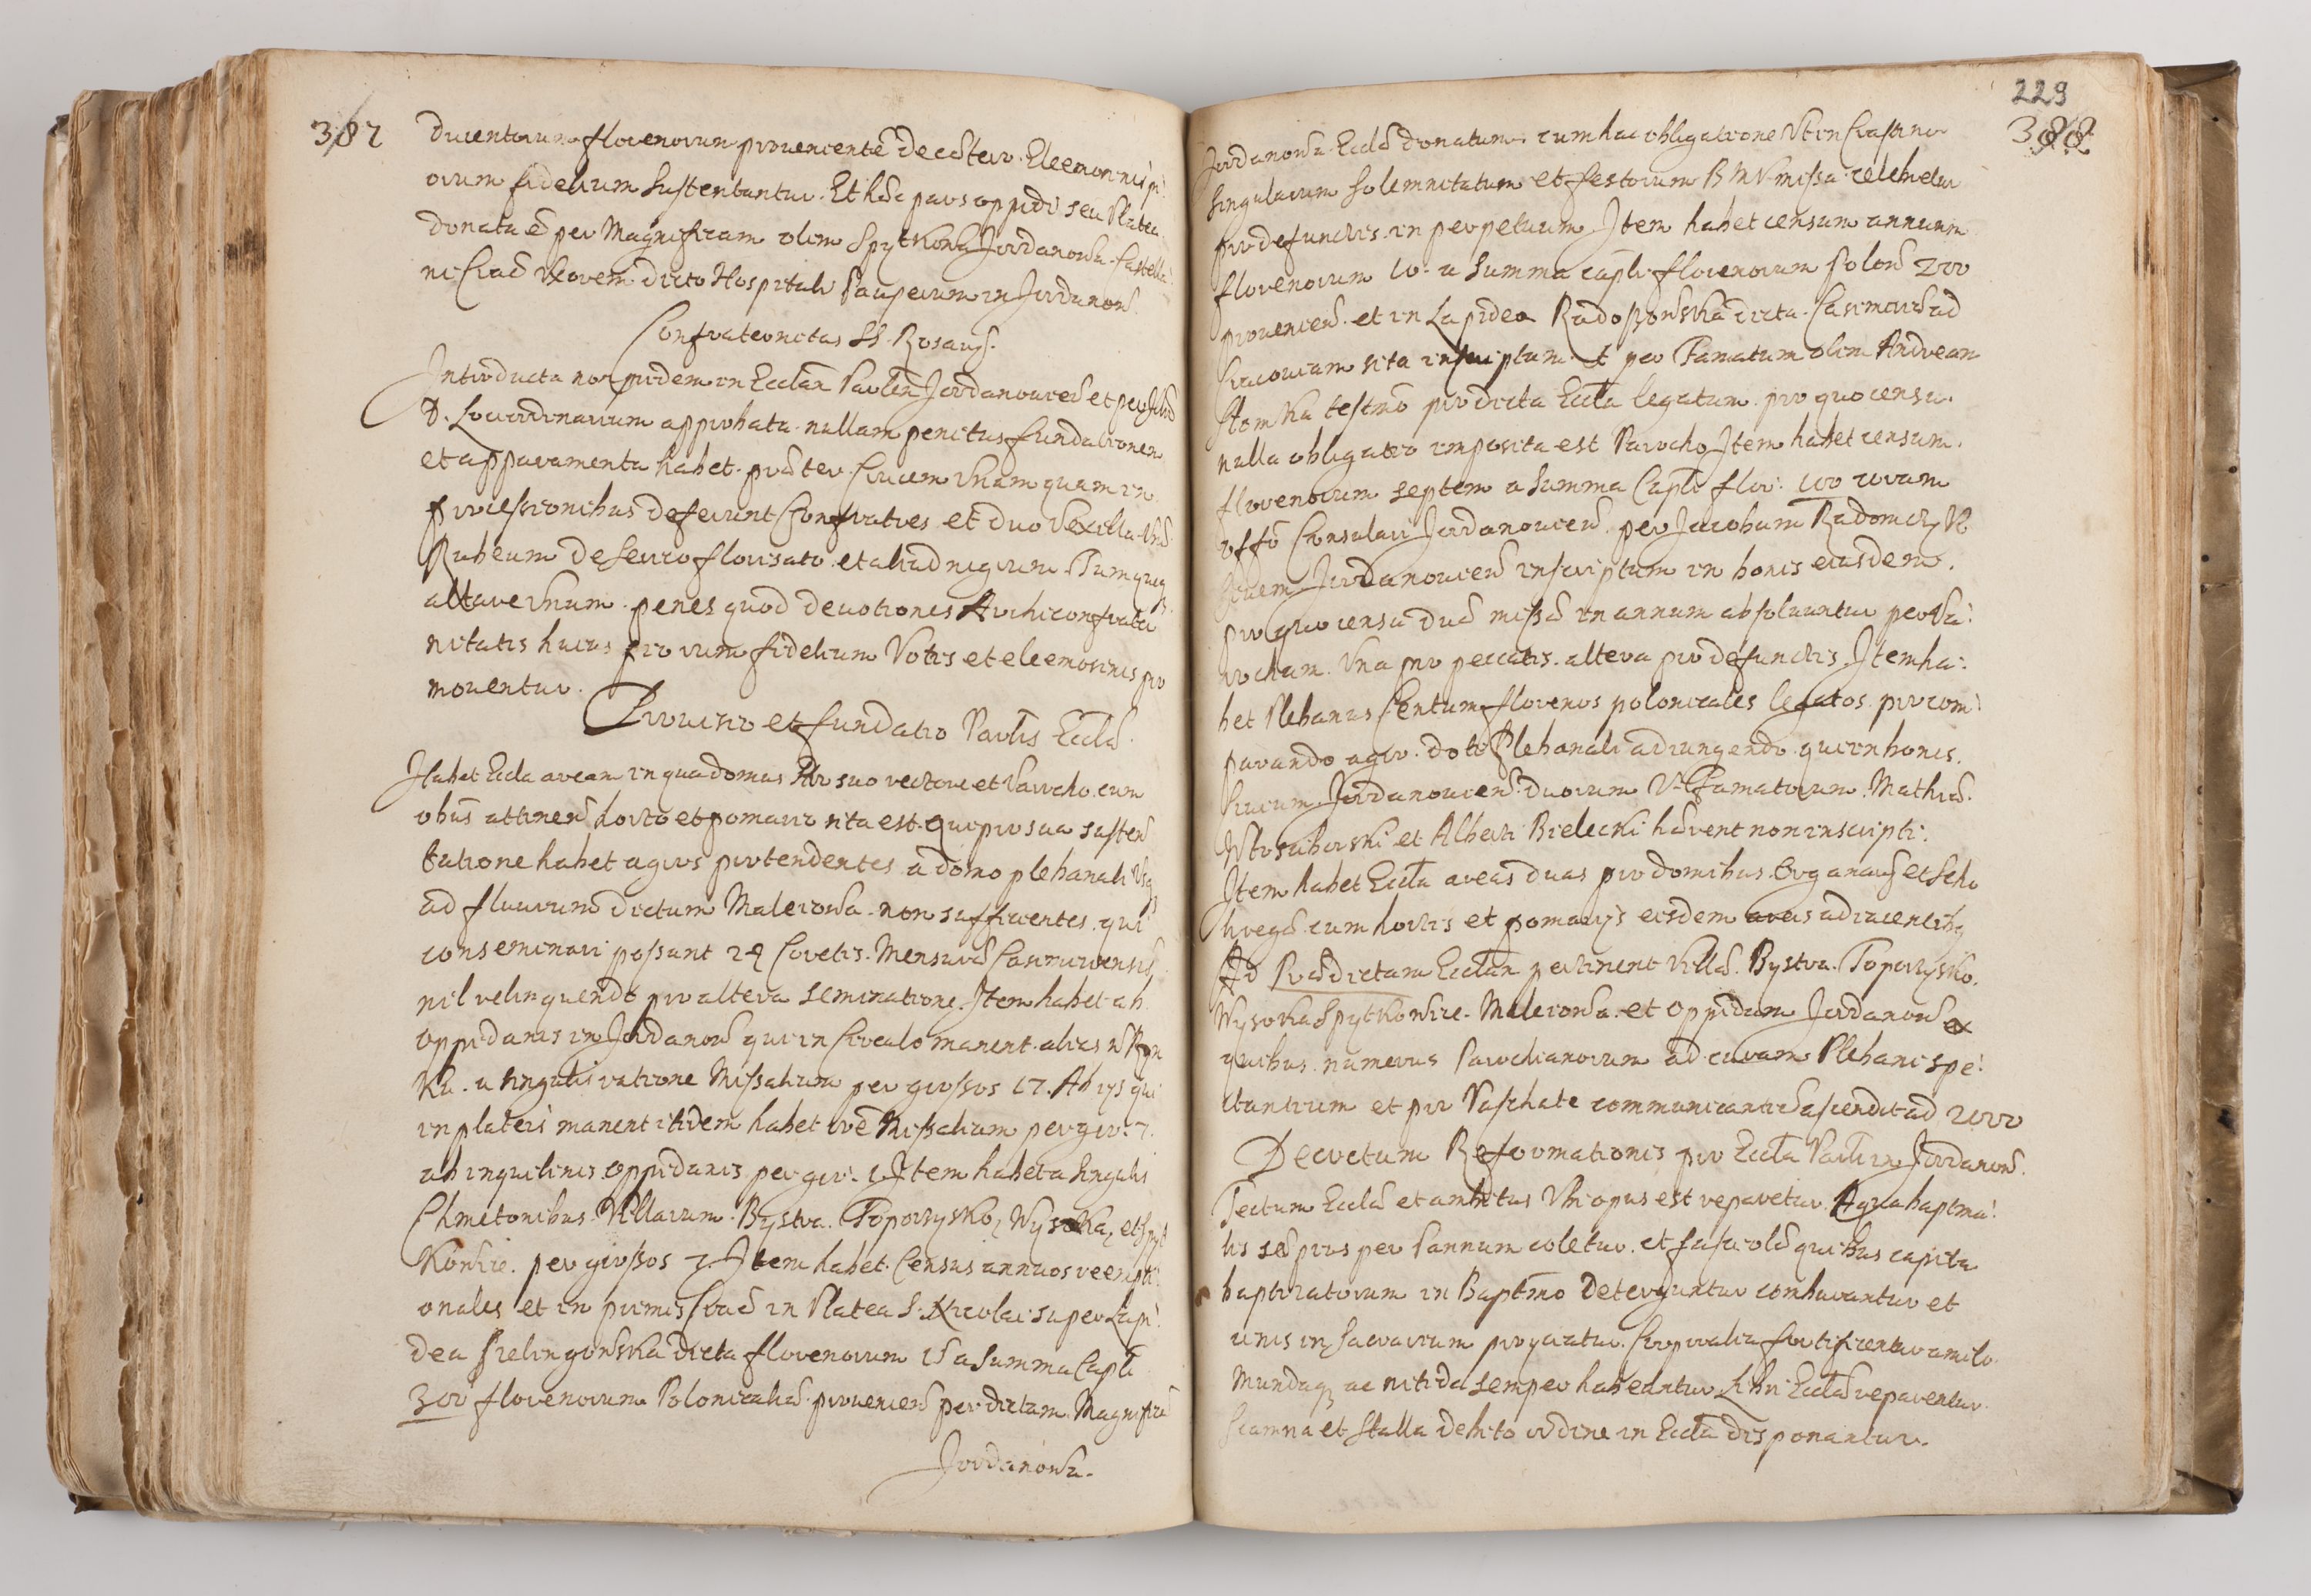 387
ducentorum florenorum provenientē de cætero. Eleemosinis pi¨
orum fidelium sustentantur. Et hæc pars oppidi seu Platea
donata ē per Magnificam olim Spytkowa Jordanowa Castella¨
ni Crac̄ Uxorem dicto Hospitali Pauperum in Jordanow.
Confraternitas SS. Rosarij.
Introducta non pridem in Ecclãm Parlem Jordanoviens et per
D. Loci ordinarium approbata nullam penitus fundationem
et apparamenta habet. præter Crucem unam quam in
processionibus deferunt Confratres et duo Vexilla Unū
Rubeum de serico florisato et aliud nigrum. Tum quoq
altare unum penes quod devotiones Archiconfrater
nitatis huius piorum fidelium Votis et eleemosinis pro
moventur.
Provisio et fundatio Parlis Eccłæ.
Habet Eccła aream in qua domus pro suo rectore et Parocho cum
obus attinen horto et pomario sita est. qui pro sua susten
tatione habet agros protendentes a domo plebanali Usq
ad fluvium dictum Maleiowa non sufficientes qui
conseminari possunt 24 Coretis. Mensuræ Casimiriensis
nil relinquendo pro altera seminatione. Item habet ab
oppidanis in Jordanow qui in Circulo manent alias w Ryn
ku. a singulis ratione Missalium per grossos 17. Ab ijs qui
in plateis manent itidem habet rōe Missalium per gro. 7.
ab inquilinis oppidanis per gro. 1. Item habet a singulis
Chmetonibus Villarum. Bystra. Toporzysko, Wysoka, et Spyt
kowice. per grossos 7. Item habet Census annuos reempti
onales et in primis Crac̄ in Platea S. Nicolai super Lapi¨
dea Pielingowska dicta florenorum 15 a Summa Capli
300 florenorum Polonicaliū provenien per dictam Magnificā
Jordanowa.
229
388
Jordanowa Eccłæ donatum. cum hac obligatione Ut in Crastino
singularum solemnitatum et festorum B M V missa celebretur
pro defunctis in perpetuum. Item habet censum annuum
florenorum 10. a Summa capli florenorum Polon 200
provenien et in Lapidea Radoszowska dicta Casimiriæ ad
Cracoviam sita inscriptum et per Famatum olim Andream
Slomka testmō prodicta Eccła legatum. pro quo censu
nulla obligatio imposita est Parocho Item habet censum
florenorum septem a Summa Capli flor: 100 coram
offō Consulari Jordanovien per Jacobum
Civem Jordanovien inscriptum in bonis eiusdem.
pro quo censu duæ missæ in annum absolvuntur per Pa¨
rochum. Una pro peccatis. altera pro defunctis. Item ha¨
bet Plebanus Centum florenos polonicales legatos pro com¨
parando agro. doti Plebanali adiungendo. qui in bonis
Civium Jordanovien duorum Famatorum. Mathiæ
et Alberti Bielecki hærent non inscripti.
Item habet Eccła areas duas pro domibus. Organarij et Scho
læ regæ cum hortis et pomarijs eisdem areis adiacentibq
Ad Prædictam Ecclãm pertinent Villæ. Bystra. Toporzysko.
Wysoka Spytkowice. Maleiowa et Oppidum Jordanow ex
quibus numerus Parochianorum ad curam Plebani spe¨
ctantium et pro Paschate communicantiū ascendit ad 2000
Decretum Reformationis pro Eccła Parli in Jordanow.
Tectum Eccłæ et ambitus Ubi opus est reparetur. Aqua baptma¨
lis sæpius per Pannum coletur. et fasciolæ quibus capita
baptizatorum in Baptmo deterguntur comburantur et
cinis in sacrarium proijciatur. Corporalia fortificentur amilo
Mundaq ac nitida semper habeantur. Libri Eccłæ reparentur
Scamna et Stalla debito ordine in Eccła disponantur.